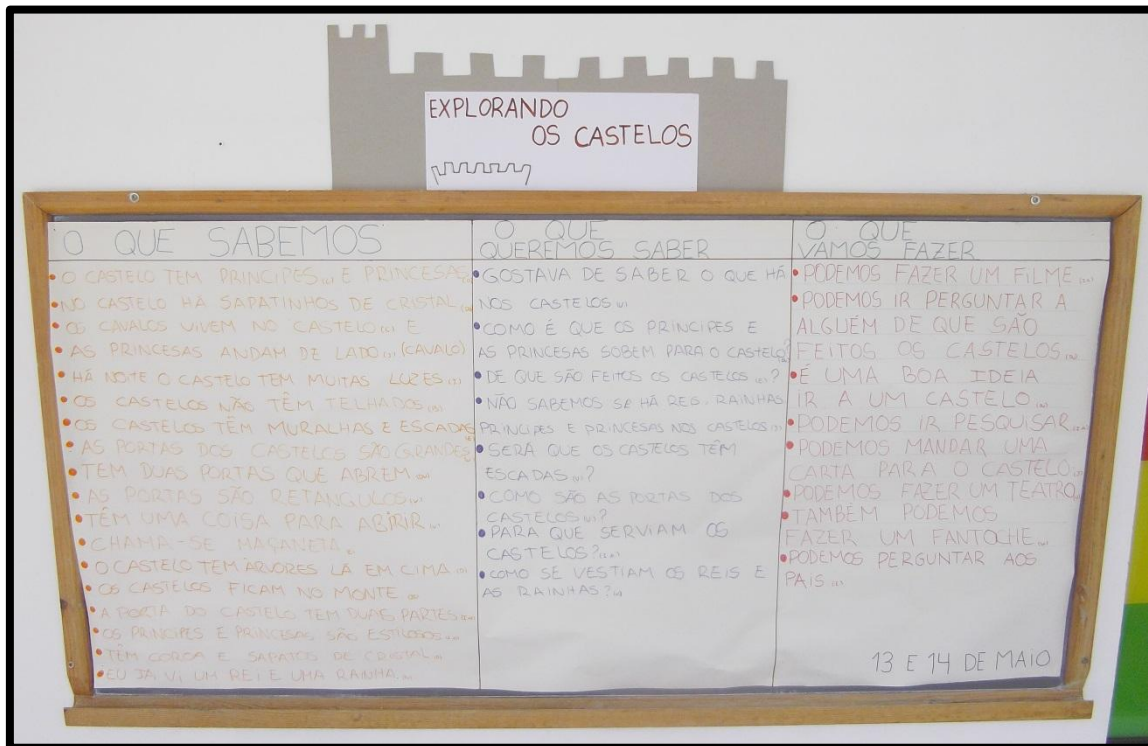 EXPLORANDO
OS CASTELOS
O QUE SABEMOS
• O CASTELO TEM PRINCIPES E PRINCESAS
• NO CASTELO HÁ SAPATINHOS DE CRISTAL
• OS CAVALOS VIVEM NO CASTELO E
• AS PRINCESAS ANDAM DE LADO (CAVALO)
• HÁ NOITE O CASTELO TEM MUITAS LUZES
• OS CASTELOS NÃO TÊM TELHADOS
• OS CASTELOS TÊM MURALHAS E ESCADAS
• AS PORTAS DOS CASTELOS SÃO GRANDES
• TEM DUAS PORTAS QUE ABREM
• AS PORTAS SÃO RETANGULOS
• TÊM UMA COISA PARA ABIRIR
• CHAMA-SE MAÇANETA
• O CASTELO TEM ÁRVORES LÁ EM CIMA
• OS CASTELOS FICAM NO MONTE
• A PORTA DO CASTELO TEM DUAS PARTES
• OS PRINCIPES E PRINCESAS SÃO ESTILOSOS
• TÊM COROA E SAPATOS DE CRISTAL
• EU JÁ VI UM REI E UMA RAINHA
O QUE
QUEREMOS SABER
• GOSTAVA DE SABER O QUE HÁ
NOS CASTELOS
• COMO É QUE OS PRÍNCIPES E
AS PRINCESAS SOBEM PARA O CASTELO?
• DE QUE SÃO FEITOS OS CASTELOS ?
• NÃO SABEMOS SE HÁ REIS, RAINHAS
PRINCIPES E PRINCESAS NOS CASTELOS
• SERÁ QUE OS CASTELOS TÊM
ESCADAS ?
• COMO SÃO AS PORTAS DOS
CASTELOS ?
• PARA QUE SERVIAM OS
CASTELOS?
• COMO SE VESTIAM OS REIS E
AS RAINHAS?
O QUE
VAMOS FAZER
• PODEMOS FAZER UM FILME
• PODEMOS IR PERGUNTAR A
ALGUÉM DE QUE SÃO
FEITOS OS CASTELOS
• É UMA BOA IDEIA
IR A UM CASTELO
• PODEMOS IR PESQUISAR
• PODEMOS MANDAR UMA
CARTA PARA O CASTELO
• PODEMOS FAZER UM TEATRO
• TAMBÉM PODEMOS
FAZER UM FANTOCHE
• PODEMOS PERGUNTAR AOS
PAIS
13 E 14 DE MAIO